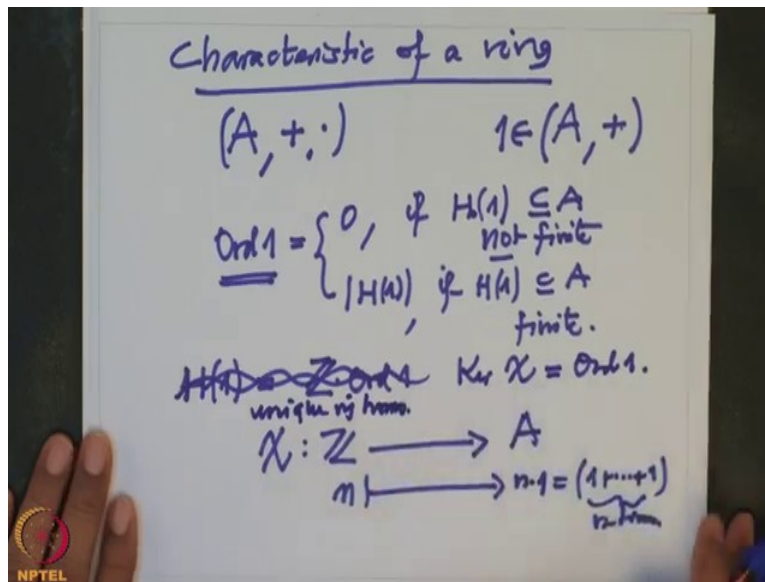 Characteristic of a ring
(A, +, ·) 1 ∈ (A, +)
Ord 1 = { 0, if H(1) ⊆ A
not finite
|H(1)|, if H(1) ⊆ A
finite.
Ker χ = Ord 1.
unique rg hom.
χ : ℤ ⟶ A
n ⟼ n·1 = (1+...+1)
NPTEL